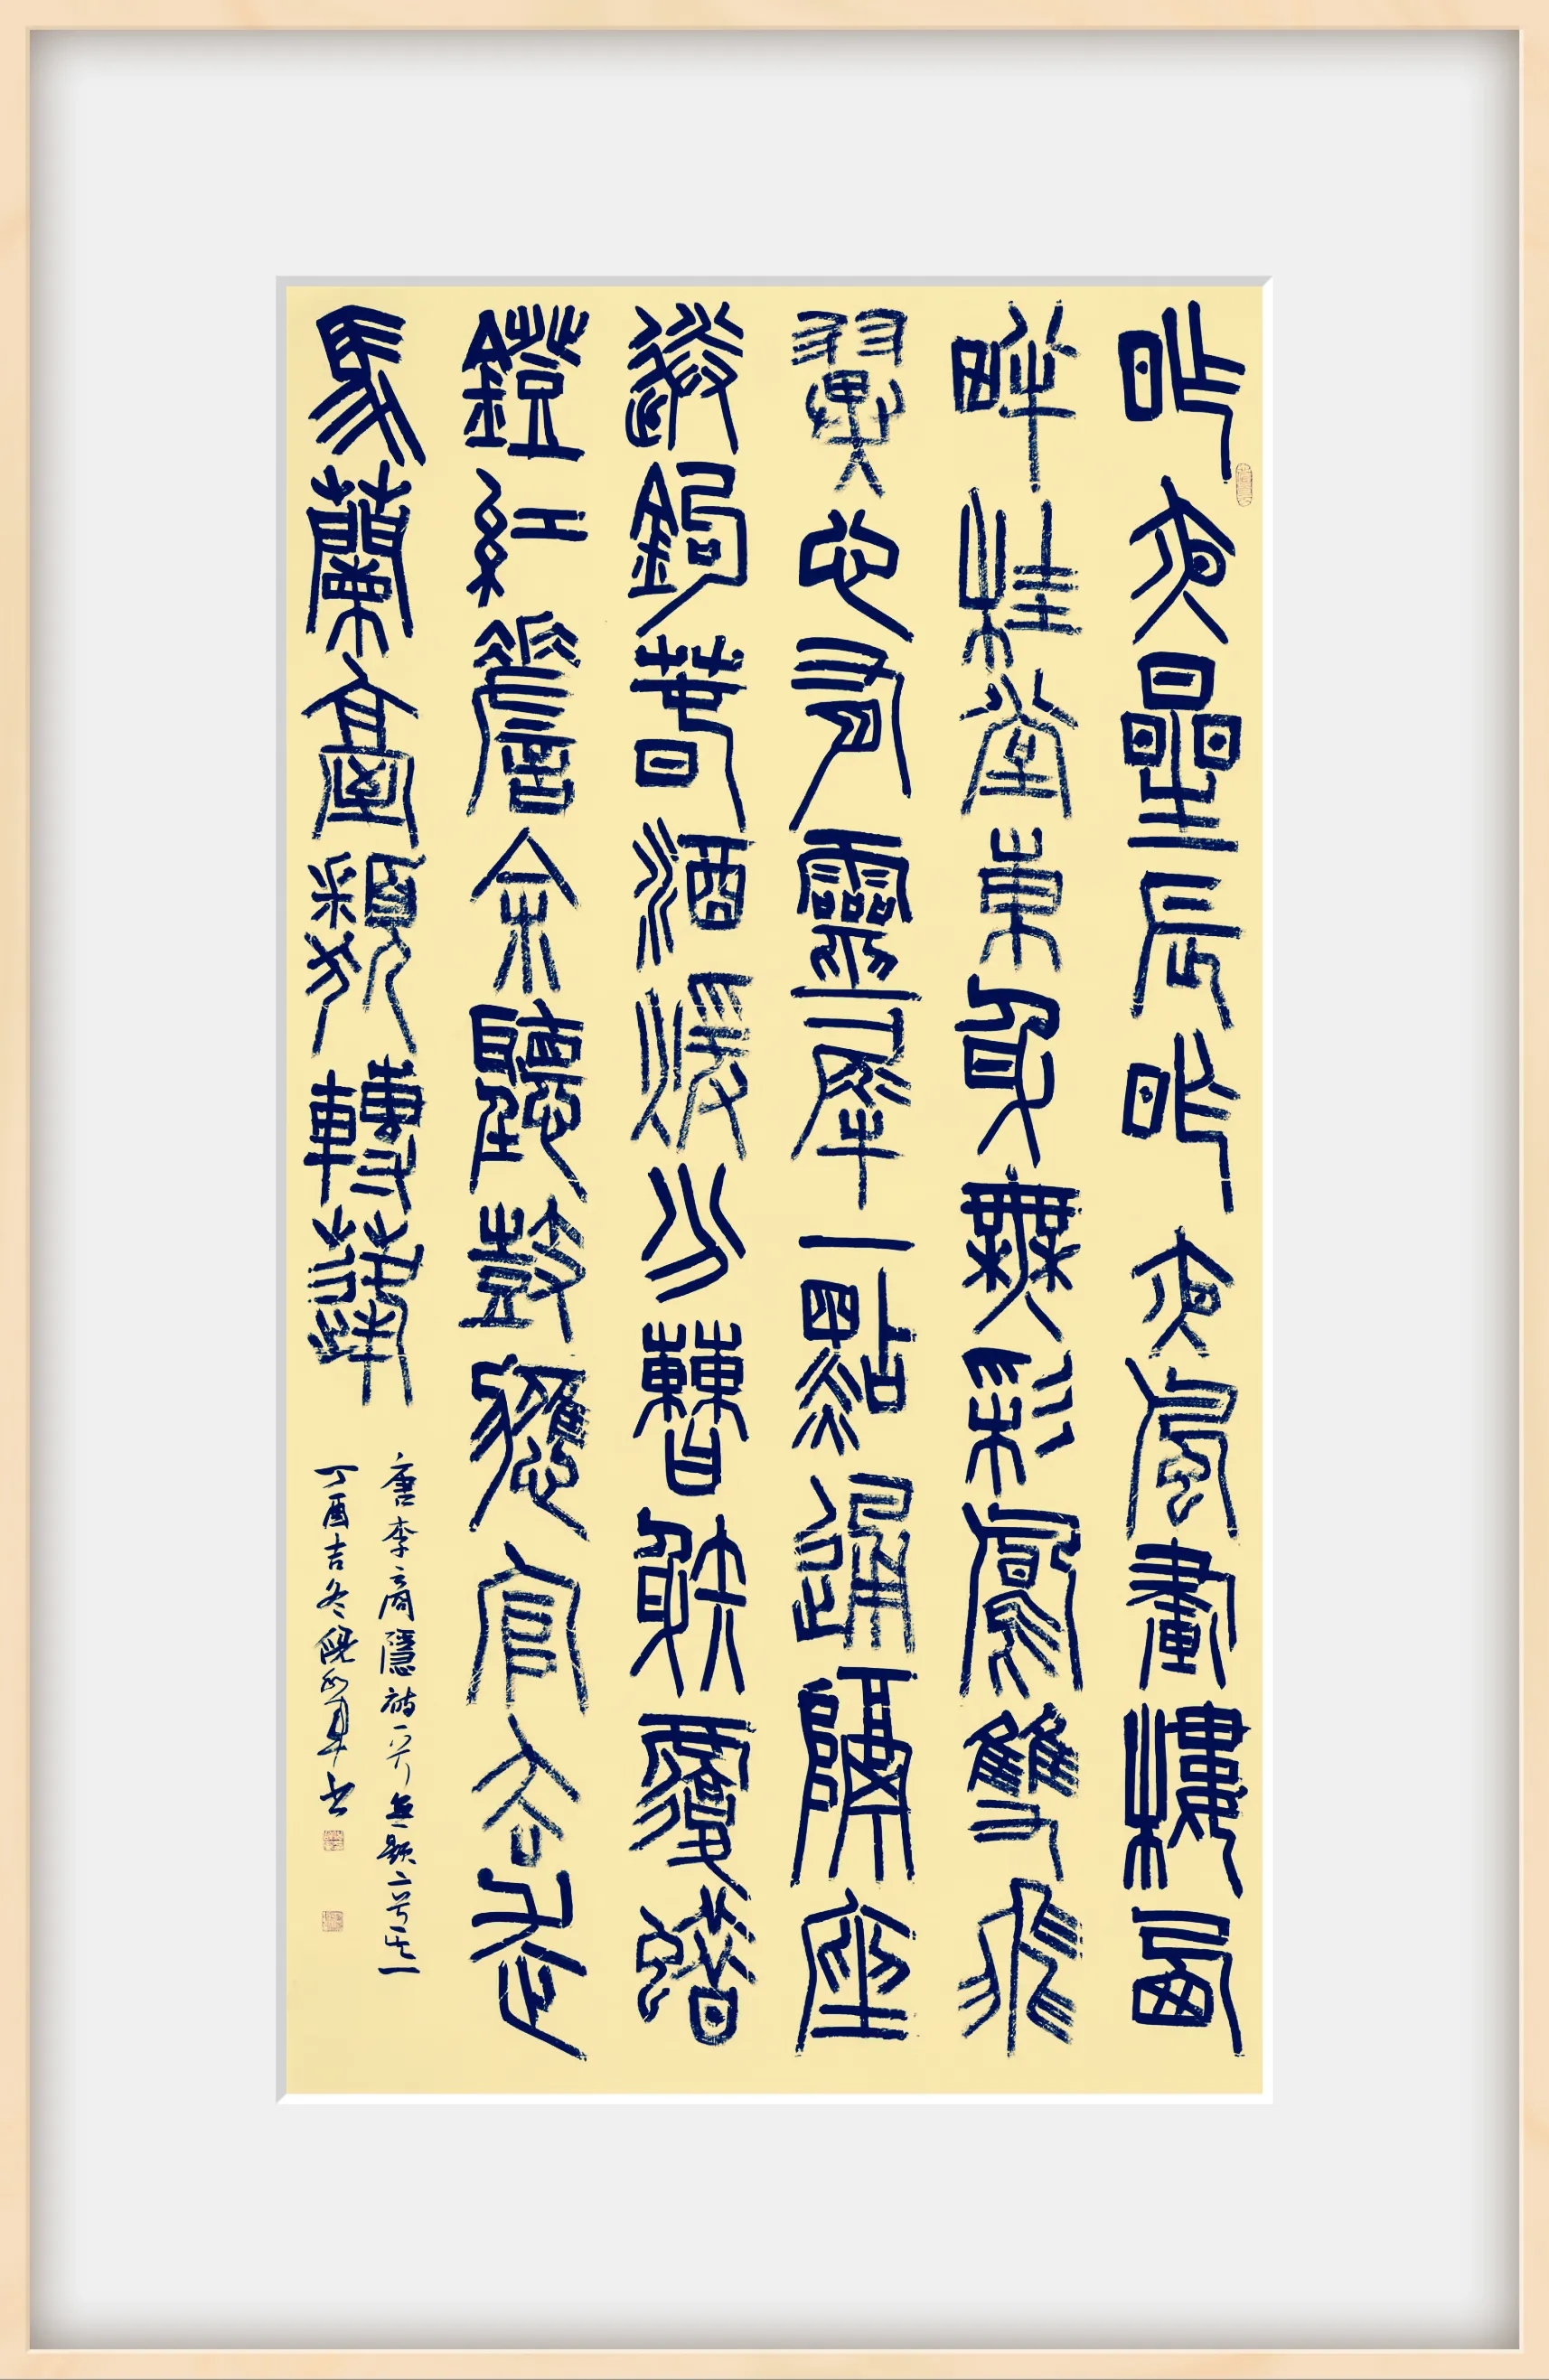 昨夜星辰昨夜風畫樓西
畔桂堂東身無彩鳳雙飛
翼心有靈犀一點通隔座
送鉤春酒煖分曹射覆蠟
鐙紅嗟余聽鼓應官去走
馬蘭臺類轉蓬
唐李商隱詩一首無題二首其一
丁酉吉冬倪軍書